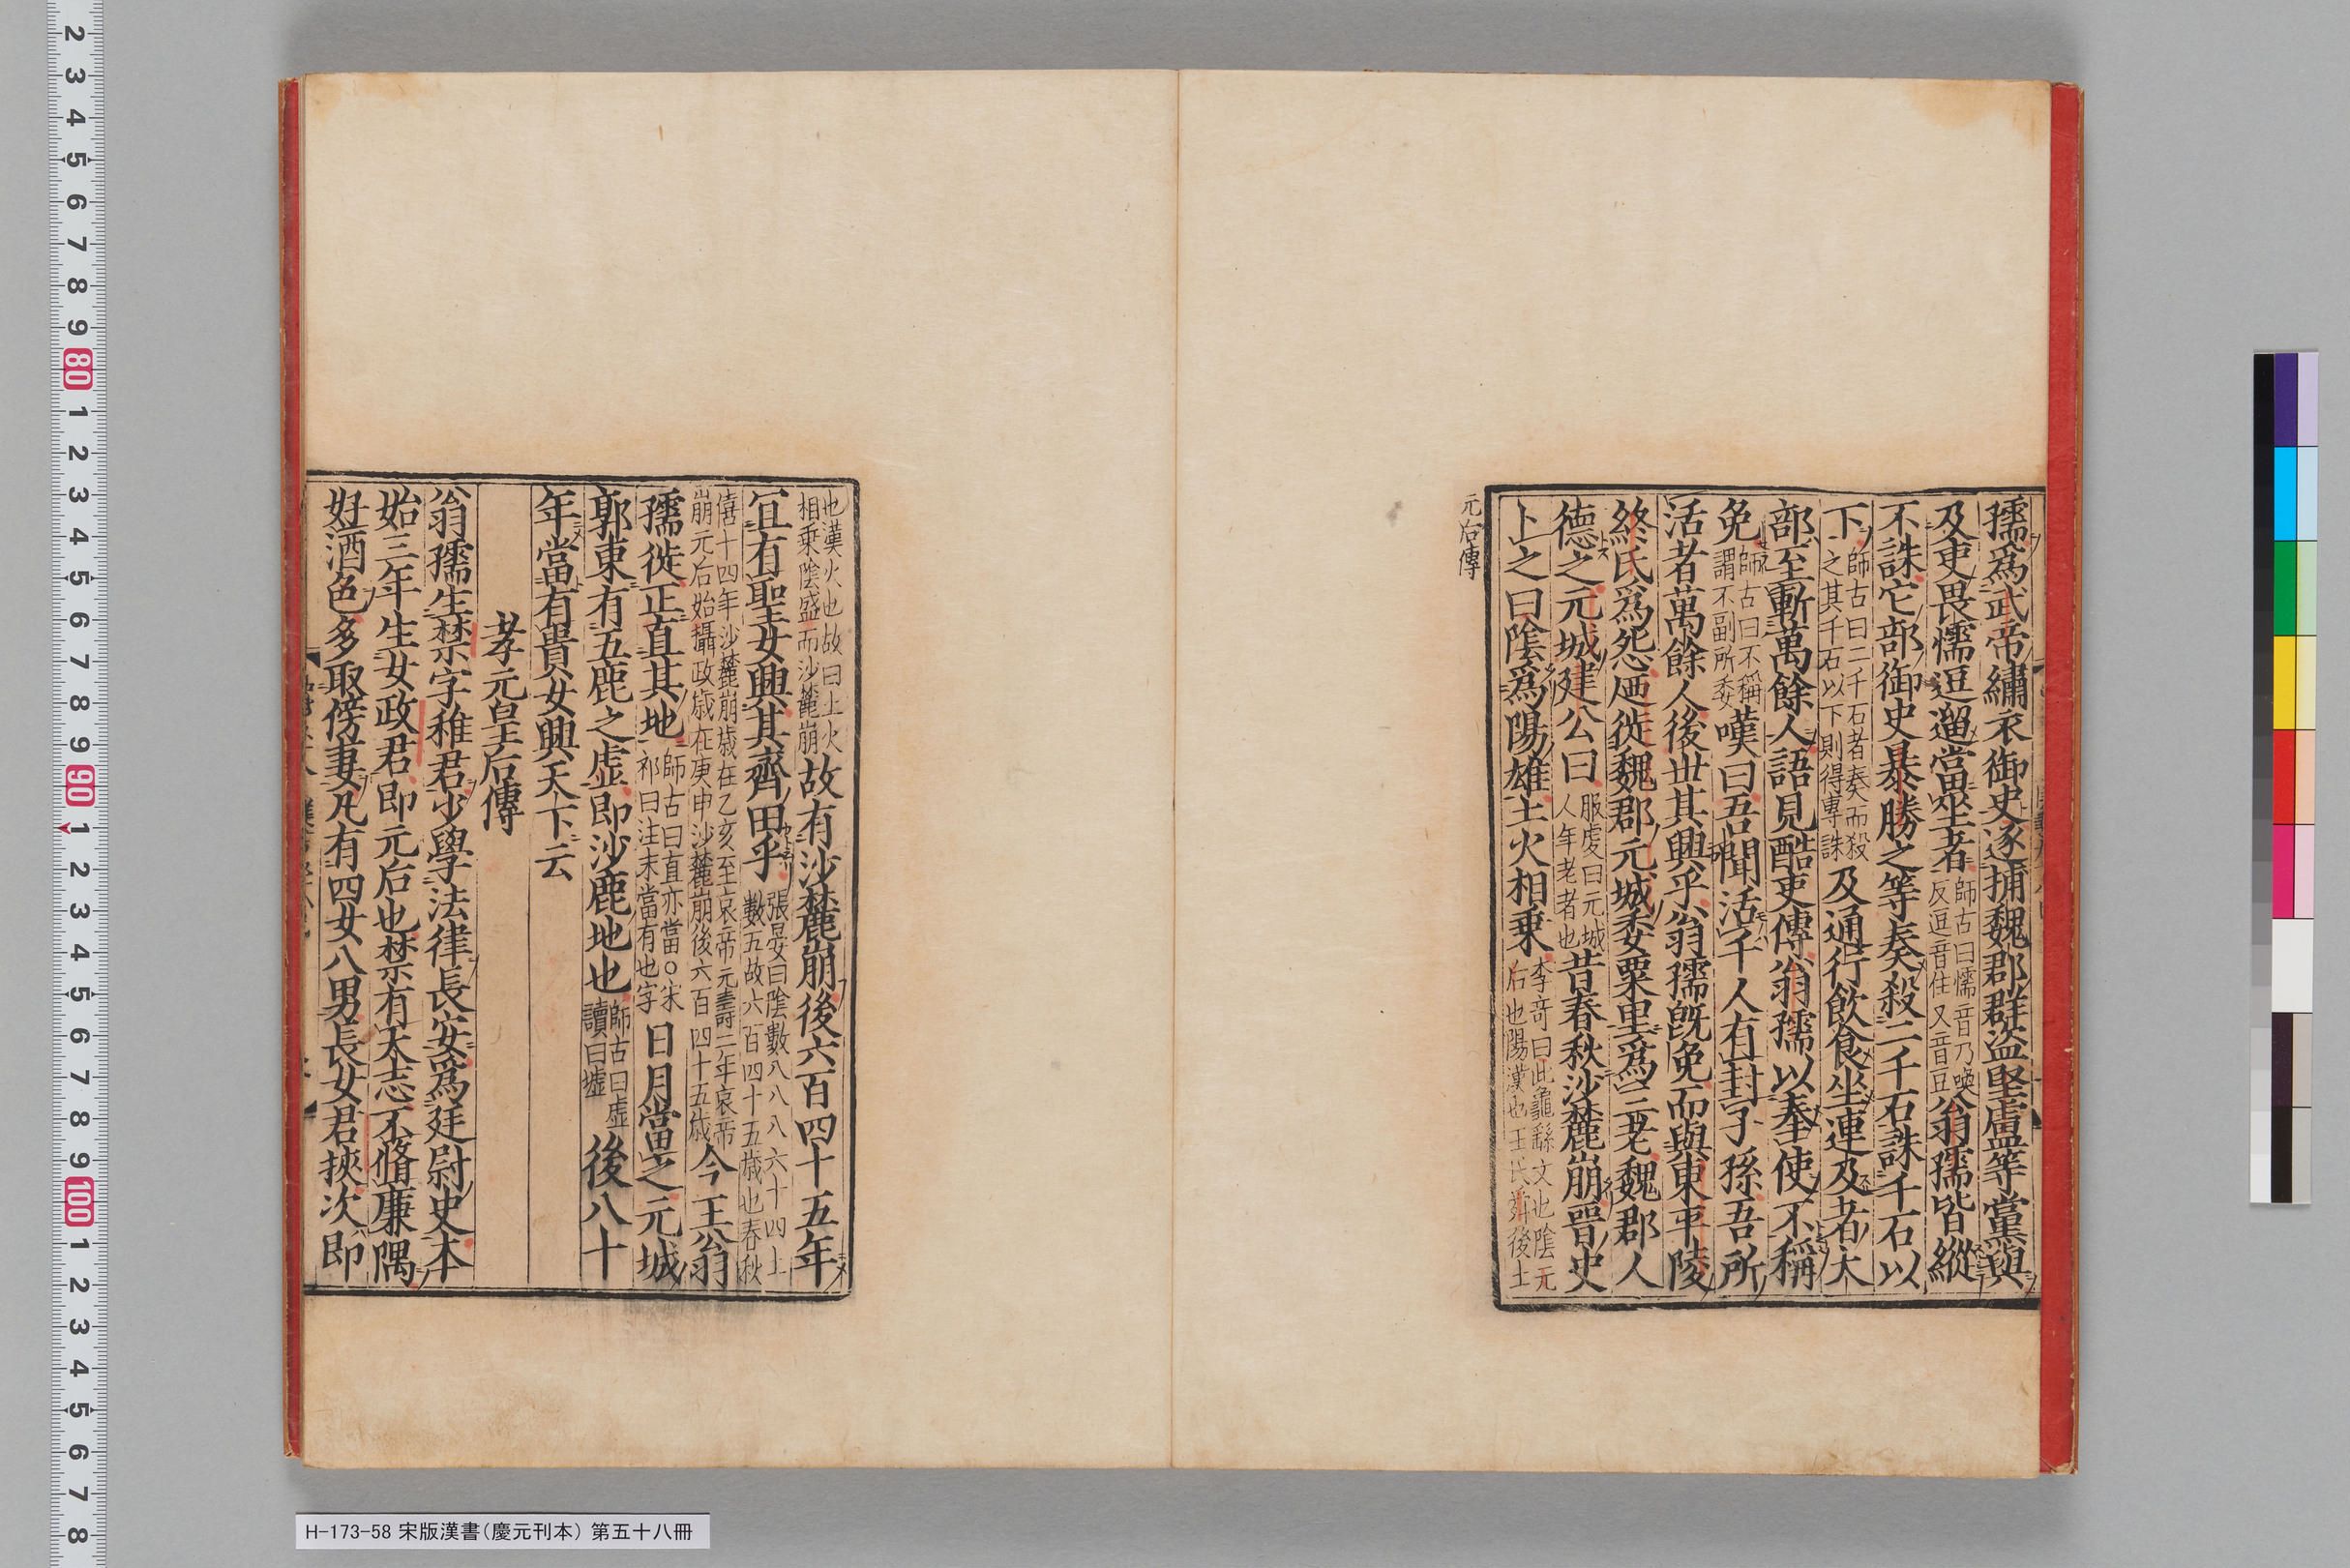 孺爲武帝繡衣御史逐捕魏郡群盜堅盧等黨與
及吏畏懦逗遛當坐者師古曰懦音乃喚反逗音住又音豆翁孺皆縱
不誅它部御史暴勝之等奏殺二千石誅千石以
下師古曰二千石者奏而殺之其千石以下則得專誅及通行飲食坐連及者大
部至斬萬餘人語見酷吏傳翁孺以奉使不稱
免師古曰不稱謂不副所委嘆曰吾聞活千人有封子孫吾所
活者萬餘人後世其興乎翁孺旣免而與東平陵
終氏爲怨廼徙魏郡元城委粟里爲三老魏郡人
德之元城建公曰服虔曰元城人年老者也昔春秋沙麓崩晉史
卜之曰陰爲陽雄土火相乗李竒曰此龜繇文也陰元后也陽漢也王氏舜後土
元后傳
也漢火也故曰土火相乗陰盛而沙麓崩故有沙麓崩後六百四十五年
冝有聖女興其齊田乎張晏曰陰數八八八六十四土數五故六百四十五歳也春秋
僖十四年沙麓崩歳在乙亥至哀帝元壽二年哀帝崩元后始攝政歳在庚申沙麓崩後六百四十五歳今王翁
孺徙正直其地師古曰直亦當○宋祁曰注末當有也字日月當之元城
郭東有五鹿之虛即沙鹿地也師古曰虛讀曰墟後八十
年當有貴女興天下云
孝元皇后傳
翁孺生禁字稚君少學法律長安爲廷尉史本
始三年生女政君即元后也禁有大志不脩廉隅
好酒色多取傍妻凡有四女八男長女君俠次即
2 3 4 5 6 7 8 9 80 1 2 3 4 5 6 7 8 9 90 1 2 3 4 5 6 7 8 9 100 1 2 3 4 5 6 7 8
H-173-58 宋版漢書（慶元刊本） 第五十八冊